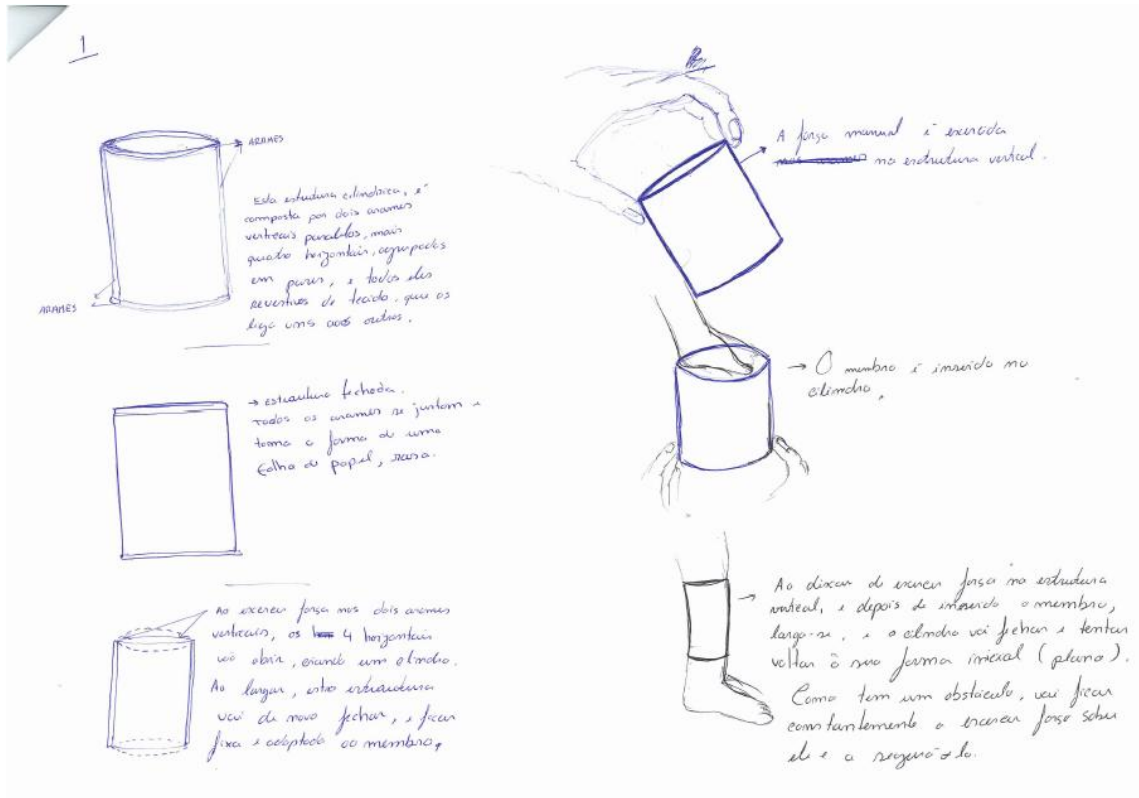 1
ARAMES
Esta estrutura cilíndrica, é
composta por dois arames
verticais paralelos, mais
quatro horizontais, agrupados
em pares, e todos eles
revestidos de tecido, que os
liga uns aos outros.
ARAMES
→ estrutura fechada.
Todos os arames se juntam e
toma a forma de uma
folha de papel, rasa.
Ao exercer força nos dois arames
verticais, os 4 horizontais
vão abrir, criando um cilindro.
Ao largar, esta estrutura
vai de novo fechar, e ficar
fixa e adaptada ao membro.
A força manual é exercida
na estrutura vertical.
→ O membro é inserido no
cilindro.
→ Ao deixar de exercer força na estrutura
vertical, e depois de inserido o membro,
larga-se, e o cilindro vai fechar e tentar
voltar à sua forma inicial (plano).
Como tem um obstáculo, vai ficar
constantemente a exercer força sobre
ele e a segurá-lo.